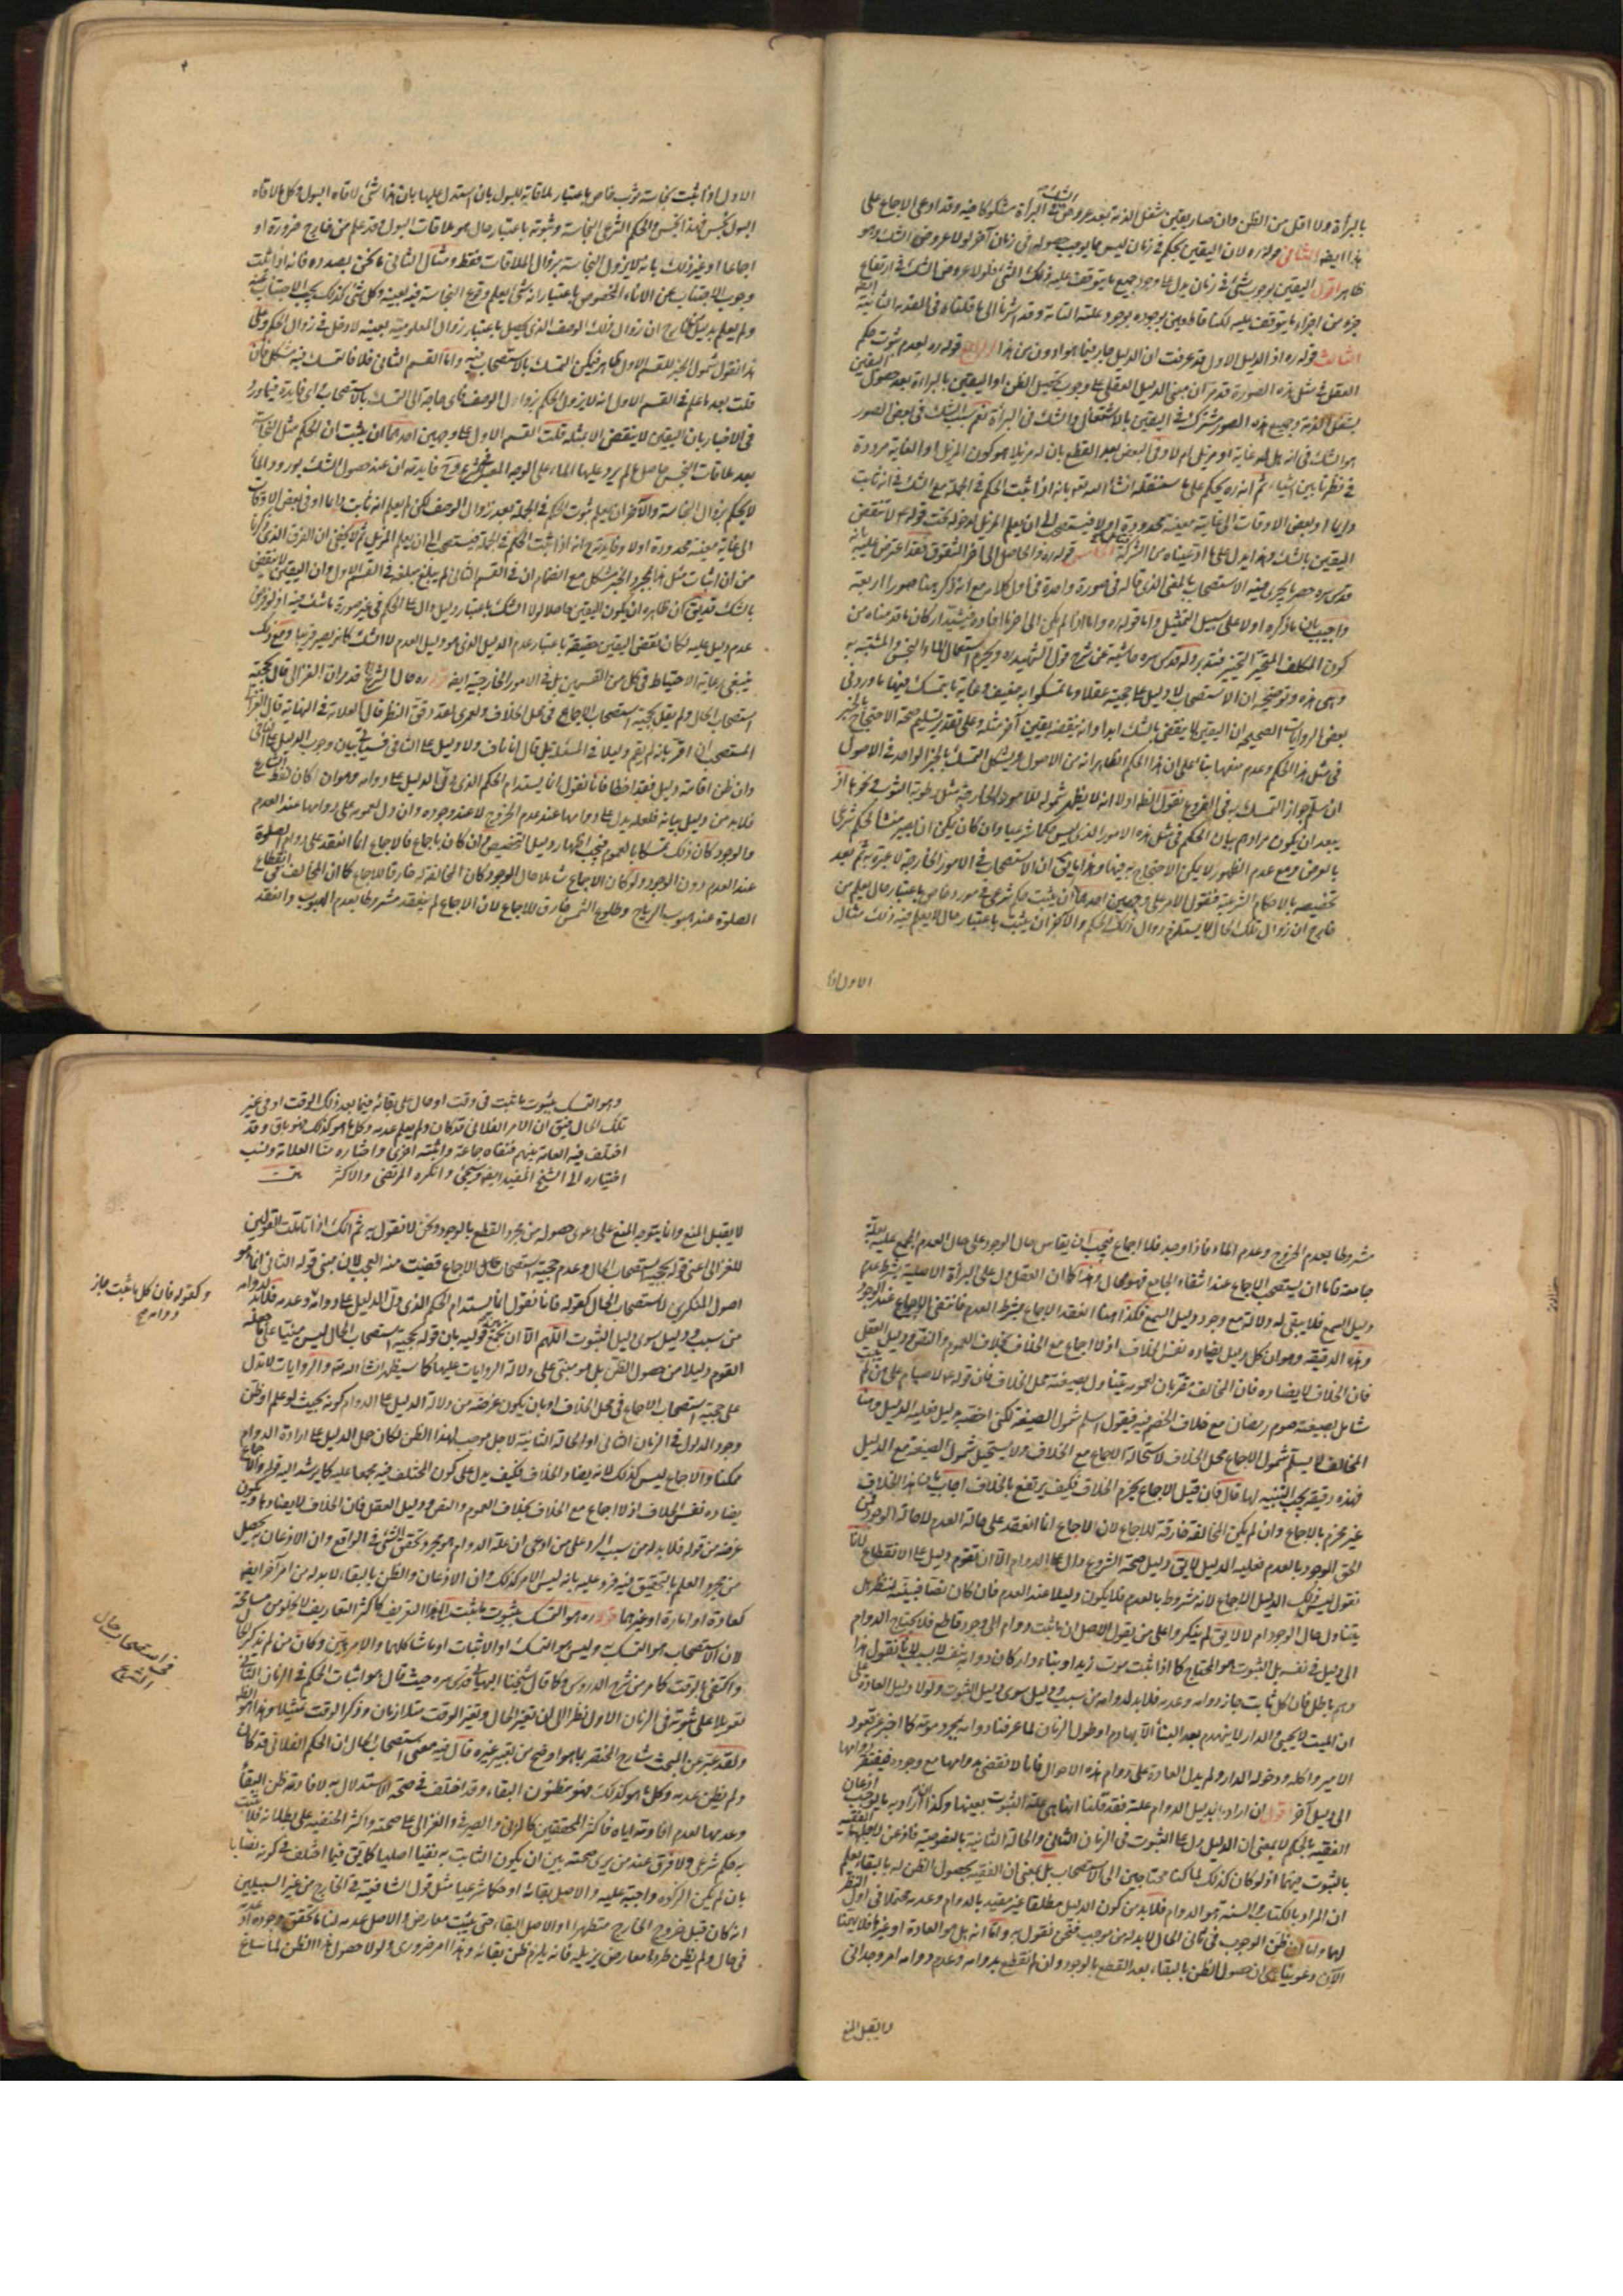 بالبرأة ولا اقل من الظن وان صار يقين شغل الذمة بعد عروض الشك فى البرأة مشكوكا فيه وقد ادعى الاجماع على
هذا ايضا الثانى قوله ره لان اليقين بحكم فى زمان ليس مما يوجب حصوله فى زمان آخر لولا عروض الشك وهو
ظاهر اقول اليقين بوجود شئ فى زمان يدل على وجود جميع ما يتوقف عليه ذلك الشئ فلولا عروض الشك فى ارتفاع
جزء من اجزاء ما يتوقف عليه لكنا قاطعين بوجوده بوجود علته التامة وقد اشرنا الى ما قلناه فى المقدمة الثانية
الثالث قوله ره اذ الدليل الاول قد عرفت ان الدليل جار فيما هو ادون من هذا الرابع قوله ره لعدم ثبوت حكم
العقل فى مثل هذه الصورة قد مر ان مبنى الدليل العقلى على وجوب تحصيل الظن او اليقين بالبراءة بعد حصول اليقين
بشغل الذمة وجميع هذه الصور مشترك فى اليقين بالاشتغال والشك فى البرأة نعم سبب الشك فى بعض الصور
هو الشك فى انه هل له غاية او مزيل ام لا وفى البعض بعد القطع بان له مزيلا هو كون المزيل او الغاية مرددة
فى نظرنا بين اشياء ثم انه ره يحكم على ما سننقله انشاء الله تعه بانه اذا ثبت الحكم فى الجملة مع الشك فى انه ثابت
دايما او بعض الاوقات الى غاية معينة محدودة او لا فيستصحب الى ان يعلم المزيل لدخوله تحت قولهم لا تنقض
اليقين بالشك وهذا يدل على ما ادعيناه من الشركة الخامس قوله ره والحاصل الى اخر الشقوق فقد اعترض عليه بانه
قدس سره حصر ما يجرى فيه الاستصحاب بالمعنى الذى قاله فى صورة واحدة فى اول كلامه مع انه ذكر هنا صورا اربعة
واجيب بان ما ذكره اولا على سبيل التمثيل واما قوله ره واما اذا لم يكن الى اخر ما افاده فيشيد اركان ما قدمناه من
كون المكلف المتحير التخيير فتدبر وله قدس سره حاشية عن شرح قول الشهيد ره ويحرم استعمال الماء النجس والمشتبه به
وهى هذه وتوضيحه ان الاستصحاب لا دليل على حجيته عقلا وما تمسكوا به ضعيف وغاية ما يتمسك فيها ما ورد فى
بعض الروايات الصحيحة ان اليقين لا ينقض بالشك ابدا وانه ينقضه يقين آخر مثله وعلى تقدير تسليم صحة الاحتجاج بالخبر
فى مثل هذا الحكم وعدم منعها بناء على ان هذا الحكم الظاهر انه من الاصول ويشكل التمسك بالخبر الواحد فى الاصول
ان سلم جواز التمسك به فى الفروع نقول الظه اولا انه لا يظهر شموله للامور الخارجية مثل رطوبة الثوب ونحوها اذ
يبعد ان يكون مرادهم بيان الحكم فى مثل هذه الامور الذى ليس حكما شرعيا وان كان يمكن ان يصير منشأ لحكم شرعى
بالعرض ومع عدم الظهور لا يمكن الاحتجاج به فيها وهذا ما يق ان الاستصحاب فى الامور الخارجة لا عبرة به ثم بعد
تخصيصه بالاحكام الشرعية فنقول الامر على وجهين احدهما ان يثبت حكم شرعى فى مورد خاص باعتبار حال يعلم من
خارج ان زوال تلك الحال لا يستلزم زوال ذلك الحكم والآخر ان يثبت باعتبار حال لا يعلم فيه ذلك مثال
الاول اذا
الاول اذا ثبت نجاسة ثوب خاص باعتبار ملاقاته للبول بان استدل عليها بان هذا شئ لاقاه البول وكل ما لاقاه
البول نجس فهذا نجس والحكم الشرعى النجاسة وثبوته باعتبار حال هو ملاقات البول وقد علم من خارج ضرورة او
اجماعا او غير ذلك بانه لا يزول النجاسة بزوال الملاقات فقط ومثال الثانى ما نحن بصدده فانه اذا ثبت
وجوب الاجتناب عن الاناء المخصوص باعتبار انه شئ يعلم وقوع النجاسة فيه بعينه وكل شئ كذلك يجب الاجتناب عنه
ولم يعلم بدليل من خارج ان زوال ذلك الوصف الذى يحصل باعتبار زوال المعلومية بعينه لا دخل فى زوال الحكم وعلى
هذا نقول شمول الخبر للقسم الاول ظاهر فيمكن التمسك بالاستصحاب فيه واما القسم الثانى فلا فالتمسك فيه مشكل فان
قلت بعد ما علم فى القسم الاول انه لا يزول الحكم بزوال الوصف فاى حاجة الى التمسك بالاستصحاب واى فايدة فيما ورد
فى الاخبار بان اليقين لا ينقض الا بمثله قلت القسم الاول على وجهين احدهما ان يثبت ان الحكم مثل النجاسة
بعد ملاقات النجس حاصل ما لم يرد عليها الماء على الوجه المعتبر فى الشرع وح فايدته ان عند حصول الشك بورود الماء
لا يحكم بزوال النجاسة والآخر ان يعلم ثبوت الحكم فى الجملة بعد زوال الوصف لكن لم يعلم انه ثابت دايما او فى بعض الاوقات
الى غاية معينة محدودة او لا وفايدته ح انه اذا ثبت الحكم فى الجملة فيستصحب الى ان يعلم المزيل ثم لا يخفى ان الفرق الذى ذكرنا
من ان اثبات مثل هذا بمجرد الخبر مشكل مع انضمام ان فى القسم الثانى لم يبلغ مبلغه فى القسم الاول وان اليقين لا ينقض
بالشك قد يق ان ظاهره ان يكون اليقين حاصلا لولا الشك باعتبار دليل دال على الحكم فى غير صورة ما شك فيه اذ لو فرض
عدم دليل عليه لكان نقض اليقين حقيقة باعتبار عدم الدليل الذى هو دليل العدم لا الشك كانه يصير قريبا ومع ذلك
ينبغى رعاية الاحتياط فى كل من القسمين بل فى الامور الخارجية ايضا قوله ره حال الشرع قد مر ان الغزالى قال بحجية
استصحاب الحال ولم يقل بحجية استصحاب الاجماع فى محل الخلاف ولعمرى لقد دقق النظر قال العلامة فى النهاية قال الغزالى
المستصحب ان اقر بانه لم يقم دليلا فى المسئلة بل قال انا ناف ولا دليل على النافى فسيأتى بيان وجوب الدليل على النافى
وان ظن اقامة دليل فقد اخطا فانا نقول انما يستدام الحكم الذى دل الدليل على دوامه وهو ان كان لفظ الشارع
فلابد من دليل بيانه فلعله يدل على دوامها عند عدم الخروج لا عند وجوده وان دل بعمومه على دوامها عند العدم
والوجود كان ذلك تمسكا بالعموم فيجب اظهار دليل التخصيص وان كان باجماع فالاجماع انما انعقد على دوام الصلوة
عند العدم دون الوجود ولو كان الاجماع شاملا حال الوجود كان المخالف له خارقا للاجماع كما ان المخالف فى انقطاع
الصلوة عند هبوب الرياح وطلوع الشمس خارق للاجماع لان الاجماع لم ينعقد مشروطا بعدم الهبوب وانعقد
مشروطا بعدم الخروج وعدم الماء فاذا وجد فلا اجماع فيجب ان يقاس حال الوجود على حال العدم المجمع عليه بعلة
جامعة فاما ان يستصحب الاجماع عند انتفاء الجامع فهو محال وهذا كما ان العقل دل على البرأة الاصلية بشرط عدم
دليل السمع فلا يبقى له دلالة مع وجود دليل السمع فكذا هنا انعقد الاجماع بشرط العدم فانتفى الاجماع عند الوجود
وهذه الدقيقة وهو ان كل دليل يضاده نفس الخلاف اذ لا اجماع مع الخلاف بخلاف العموم والنص ودليل العقل
فان الخلاف لا يضاده فان المخالف مقر بان العموم يتناول بصيغته محل الخلاف فان قوله ع لا صيام على من لم يبيت
شامل بصيغته صوم رمضان مع خلاف الخصم فيه فيقول اسلم شمول الصيغة لكنى اخصه بدليل فعليه الدليل وهنا
المخالف لا يسلم شمول الاجماع محل الخلاف لاستحالة الاجماع مع الخلاف ولا يستحيل شمول الصيغة مع الدليل
فهذه دقيقة يجب التنبه لها قال فان قيل الاجماع يحرم الخلاف فكيف يرتفع بالخلاف اجاب بان هذا الخلاف
غير محرم بالاجماع وان لم يكن المخالفة خارقة للاجماع لان الاجماع انما انعقد على حالة العدم لا حالة الوجود فمن
الحق الوجود بالعدم فعليه الدليل لا يق دليل صحة الشروع دال على الدوام الا ان يقوم دليل على الانقطاع لانا
نقول ليس ذلك الدليل الاجماع لانه مشروط بالعدم فلا يكون دليلا عند العدم فان كان نصا فبينه لننظر هل
يتناول حال الوجود ام لا لا يق لم ينكروا على من يقول الاصل ان ما ثبت دوام الى وجود قاطع فلا يحتاج الدوام
الى دليل فى نفسه بل الثبوت هو المحتاج كما اذا ثبت موت زيد او بناء دار كان دوامه بنفسه لا بسبب لانا نقول هذا
وهم باطل فان كل ثابت جاز دوامه وعدمه فلابد لدوامه من سبب ودليل سوى دليل الثبوت ولولا دليل العادة على
ان الميت لا يحيى والدار لا ينهدم بعد البناء الا بهادم او طول الزمان لما عرفنا دوامه بمجرد موته كما اخبر عن قعود
الامير واكله ودخوله الدار ولم يدل العادة على دوام هذه الاحوال فانا لا نقضى بدوامها مع وجوده فيفتقر دوامها
الى دليل آخر اقول ان اراد بدليل الدوام علته فقد قلنا انها هى علة الثبوت بعينها وكذا ان اراد به ما يوجب اذعان
الفقيه بالحكم لا بمعنى ان الدليل دل على الثبوت فى الزمان الثانى والحالة الثانية بالخصوصية فاذعن لاجلها الفقيه
بالثبوت فيهما اذ لو كان كذلك لما كنا محتاجين الى الاستصحاب بل بمعنى ان الفقيه يحصول الظن له بالبقاء يعلم
ان المراد بالكتاب والسنة هو الدوام فلابد من كون الدليل مطلقا غير مقيد بالدوام وعدمه محتملا فى اول النظر
لهما واما ان ظن الوجوب فى ثانى الحال لابد له من موجب فنحن نقول به واما انه هل هو العادة او غيرها فلا يهمنا
الآن دعوينا على ان حصول الظن بالبقاء بعد القطع بالوجود وان لم نقطع بدوامه وعدم دوامه امر وجدانى
لا يقبل المنع
وهو التمسك بثبوت ما ثبت فى وقت او حال على بقائه فيما بعد ذلك الوقت او فى غير
تلك الحال فيق ان الامر الفلانى قد كان ولم يعلم عدمه وكل ما هو كذلك فهو باق وقد
اختلف فيه العامة بينهم فنفاه جماعة واثبته اخرى واختاره منا العلامة ونسب
اختياره الى الشيخ المفيد ايضا وسيجئ وانكره المرتضى والاكثر
لا يقبل المنع وانما يتوجه المنع على دعوى حصوله من مجرد القطع بالوجود ونحن لا نقول به ثم انك اذا تأملت القولين
للغزالى اعنى قوله بحجية استصحاب الحال وعدم حجية استصحاب حال الاجماع قضيت منه العجب لان مبنى قوله الثانى انما هو
اصول المنكرين لاستصحاب الحال كقوله فانا نقول انما يستدام الحكم الذى دل الدليل على دوامه وعدمه فلابد لدوامه
من سبب ودليل سوى دليل الثبوت اللهم الا ان يجمع بين قوليه بان قوله بحجية استصحاب الحال ليس مبنيا على ما ظنه
القوم دليلا من حصول الظن بل هو مبتنى على دلالة الروايات عليها كما سيظهر انشاء الله تعه والروايات لا تدل
على حجية استصحاب الاجماع فى محل الخلاف او بان يكون غرضه من دلالة الدليل على الدوام كونه بحيث لو علم او ظن
وجود المدلول فى الزمان الثانى او الحالة الثانية لاجل موجب لهذا الظن لكان حمل الدليل على ارادة الدوام
ممكنا والاجماع ليس كذلك لانه يضاد الخلاف فكيف يدل على كون المختلف فيه مجمعا عليه كما يرشد اليه قوله والاجماع
يضاده نفس الخلاف اذ لا اجماع مع الخلاف بخلاف العموم والنص ودليل العقل فان الخلاف لا يضادها ويكون
غرضه من قوله فلابد له من سبب الرد على من ادعى ان علة الدوام هو مجرد تحقق الشئ فى الواقع وان الاذعان به يحصل
من مجرد العلم بالتحقيق فيه فرد عليه بانه ليس الامر كذلك وان الاذعان والظن بالبقاء لابد له من امر آخر ايضا
كعادة او امارة او غيرهما قوله ره هو التمسك بثبوت ما ثبت الخ هذا التعريف كاكثر التعاريف لا يخلو من مسامحة
لان الاستصحاب هو التمسك به وليس هو التمسك او الاثبات او ما شاكلهما والامر هين وكان من لم يذكر الحال
واكتفى بالوقت كما مر من شرح الدروس وكما قال شيخنا البهائى قدس سره حيث قال هو اثبات الحكم فى الزمان الثانى
تعويلا على ثبوته فى الزمان الاول نظر الى ان تغير الحال وتغير الوقت متلازمان وذكر الوقت تمثيلا وهذا هو الظه
ولقد عبر عن المبحث شارح المختصر بما هو اوضح من تعبير غيره قال فيه معنى استصحاب الحال ان الحكم الفلانى قد كان
ولم يظن عدمه وكل ما هو كذلك فهو مظنون البقاء وقد اختلف فى صحة الاستدلال به لافادته ظن البقاء
وعدمها لعدم افادته اياه فاكثر المحققين كالمزنى والصيرفى والغزالى على صحته واكثر الحنفية على بطلانه فلا يثبت
به حكم شرعى ولا فرق عند من يرى صحته بين ان يكون الثابت به نفيا اصليا كما يق فيما اختلف فى كونه نصابا
بان لم يكن الزكوة واجبة عليه والاصل بقائه او حكما شرعيا مثل قول الشافعية فى الخارج من غير السبيلين
انه كان قبل خروج الخارج متطهرا والاصل البقاء حتى يثبت معارض والاصل عدمه لنا ما تحقق وجوده او عدمه
فى حال ولم يظن طروء معارض يزيله فانه يلزم ظن بقائه وهذا امر ضرورى ولولا حصول هذا الظن لما ساغ
وكقوله فان كل ما ثبت جاز
دوامه صح
فى استصحاب حال
الشرع